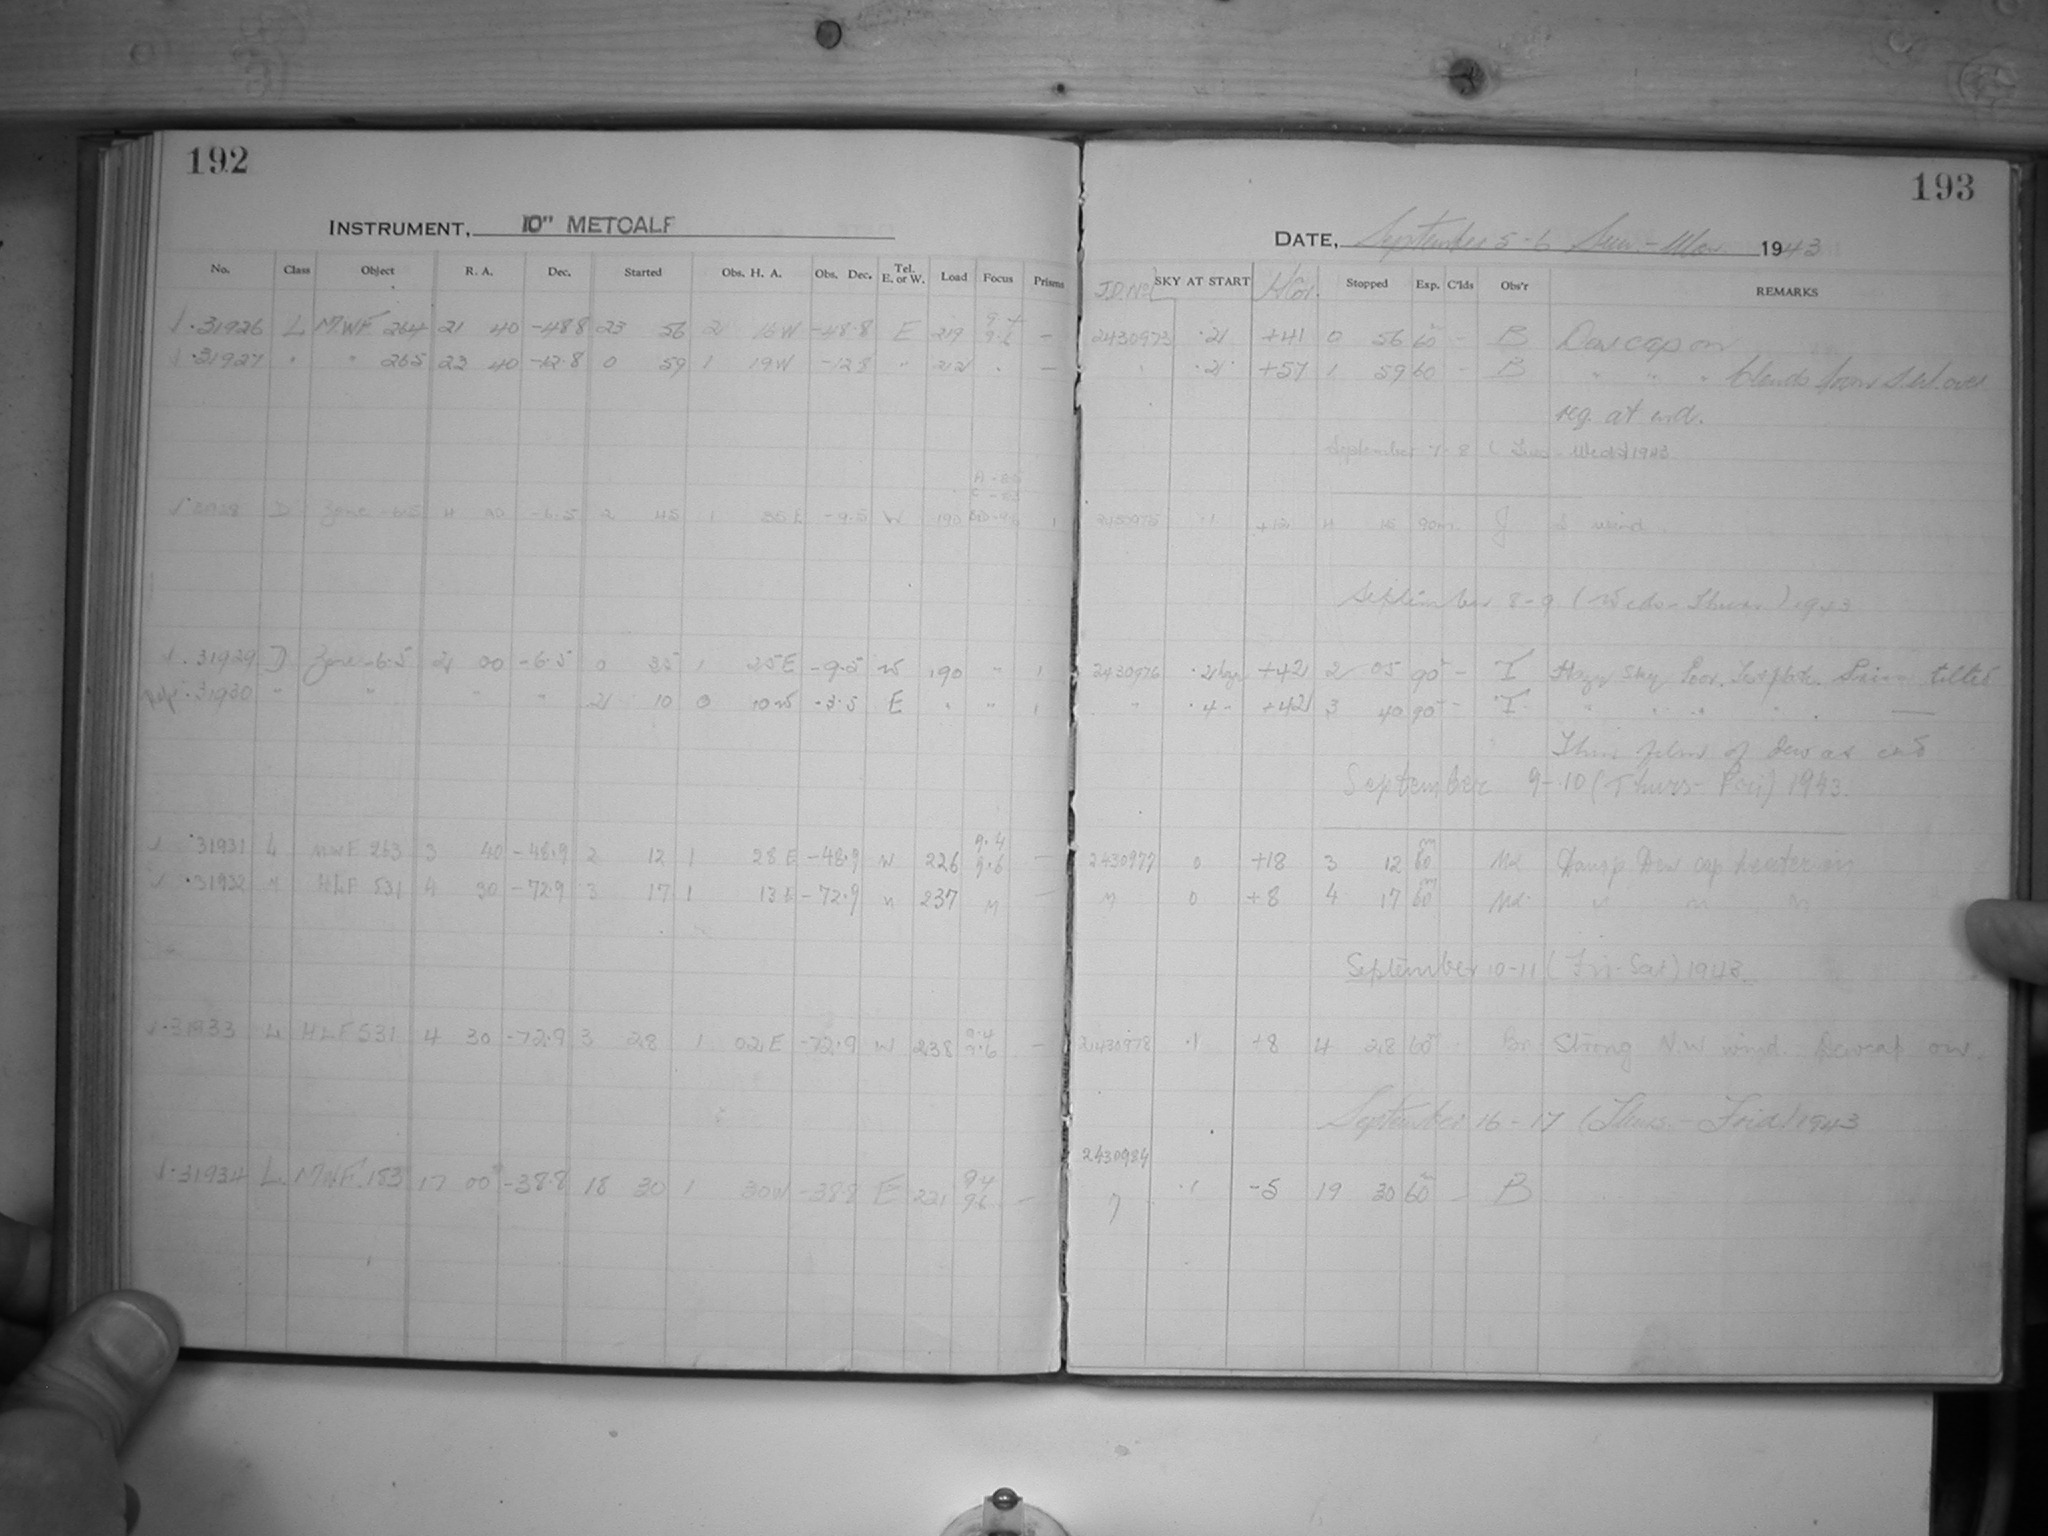 192
INSTRUMENT, 10" METCALF
No. Class Object R. A. Dec. Started Obs. H. A. Obs. Dec. Tel. E. or W. Load Focus Prisms
9.4
.31926 L MWF 264 21 40 -48.8 23 56 2 16W -48.8 E 219 9.6 -
.31927 " " 265 23 40 -12.8 0 59 1 19W -12.8 " 212 " -
D Zone -6.5 -6.5 2 45 1 35E -9.5 W 190 1
.31929 D Zone -6.5 21 00 -6.5 0 35 1 25E -9.5 W 190 " 1
.31930 " " " " 2 10 0 10W -3.5 E " " 1
9.4
.31931 L MWF 263 3 40 -48.9 2 12 1 28E -48.9 W 226 9.6 -
.31932 " HLF 531 4 30 -72.9 3 17 1 13E -72.9 " 237 " -
9.4
.31933 L HLF 531 4 30 -72.9 3 28 1 02E -72.9 W 238 9.6 -
9.4
.31934 L. MWF. 183 17 00 -38.8 18 30 1 30W -38.8 E 221 9.6 -
193
DATE, September 5-6 Sun.-Mon. 1943
J.D. No. SKY AT START Stopped Exp. C'lds Obs'r REMARKS
2430973 .2 +41 0 56 60m - B Dewcap on
" .2 +57 1 59 60 - B " " " Clouds from S.W. over
reg. at end.
September 7-8 (Tues-Wed) 1943
2430975 .1 +12 4 15 90m. J wind
September 8-9 (Weds-Thurs) 1943
2430976 .2 hazy +42 2 05 90 - T Hazy sky Poor. Prism tilted
" .4 - +42 3 40 90 - T " " " "
Thin film of dew at end
September 9-10 (Thurs-Fri) 1943.
2430977 0 +18 3 12 60m Md Damp Dew cap heater on
" 0 +8 4 17 60m Md. " " "
September 10-11 (Fri-Sat) 1943.
2430978 .1 +8 4 28 60m - Br Strong N.W wind. Dewcap on.
September 16-17 (Thurs.-Frid) 1943
2430984
.1 -5 19 30 60m - B